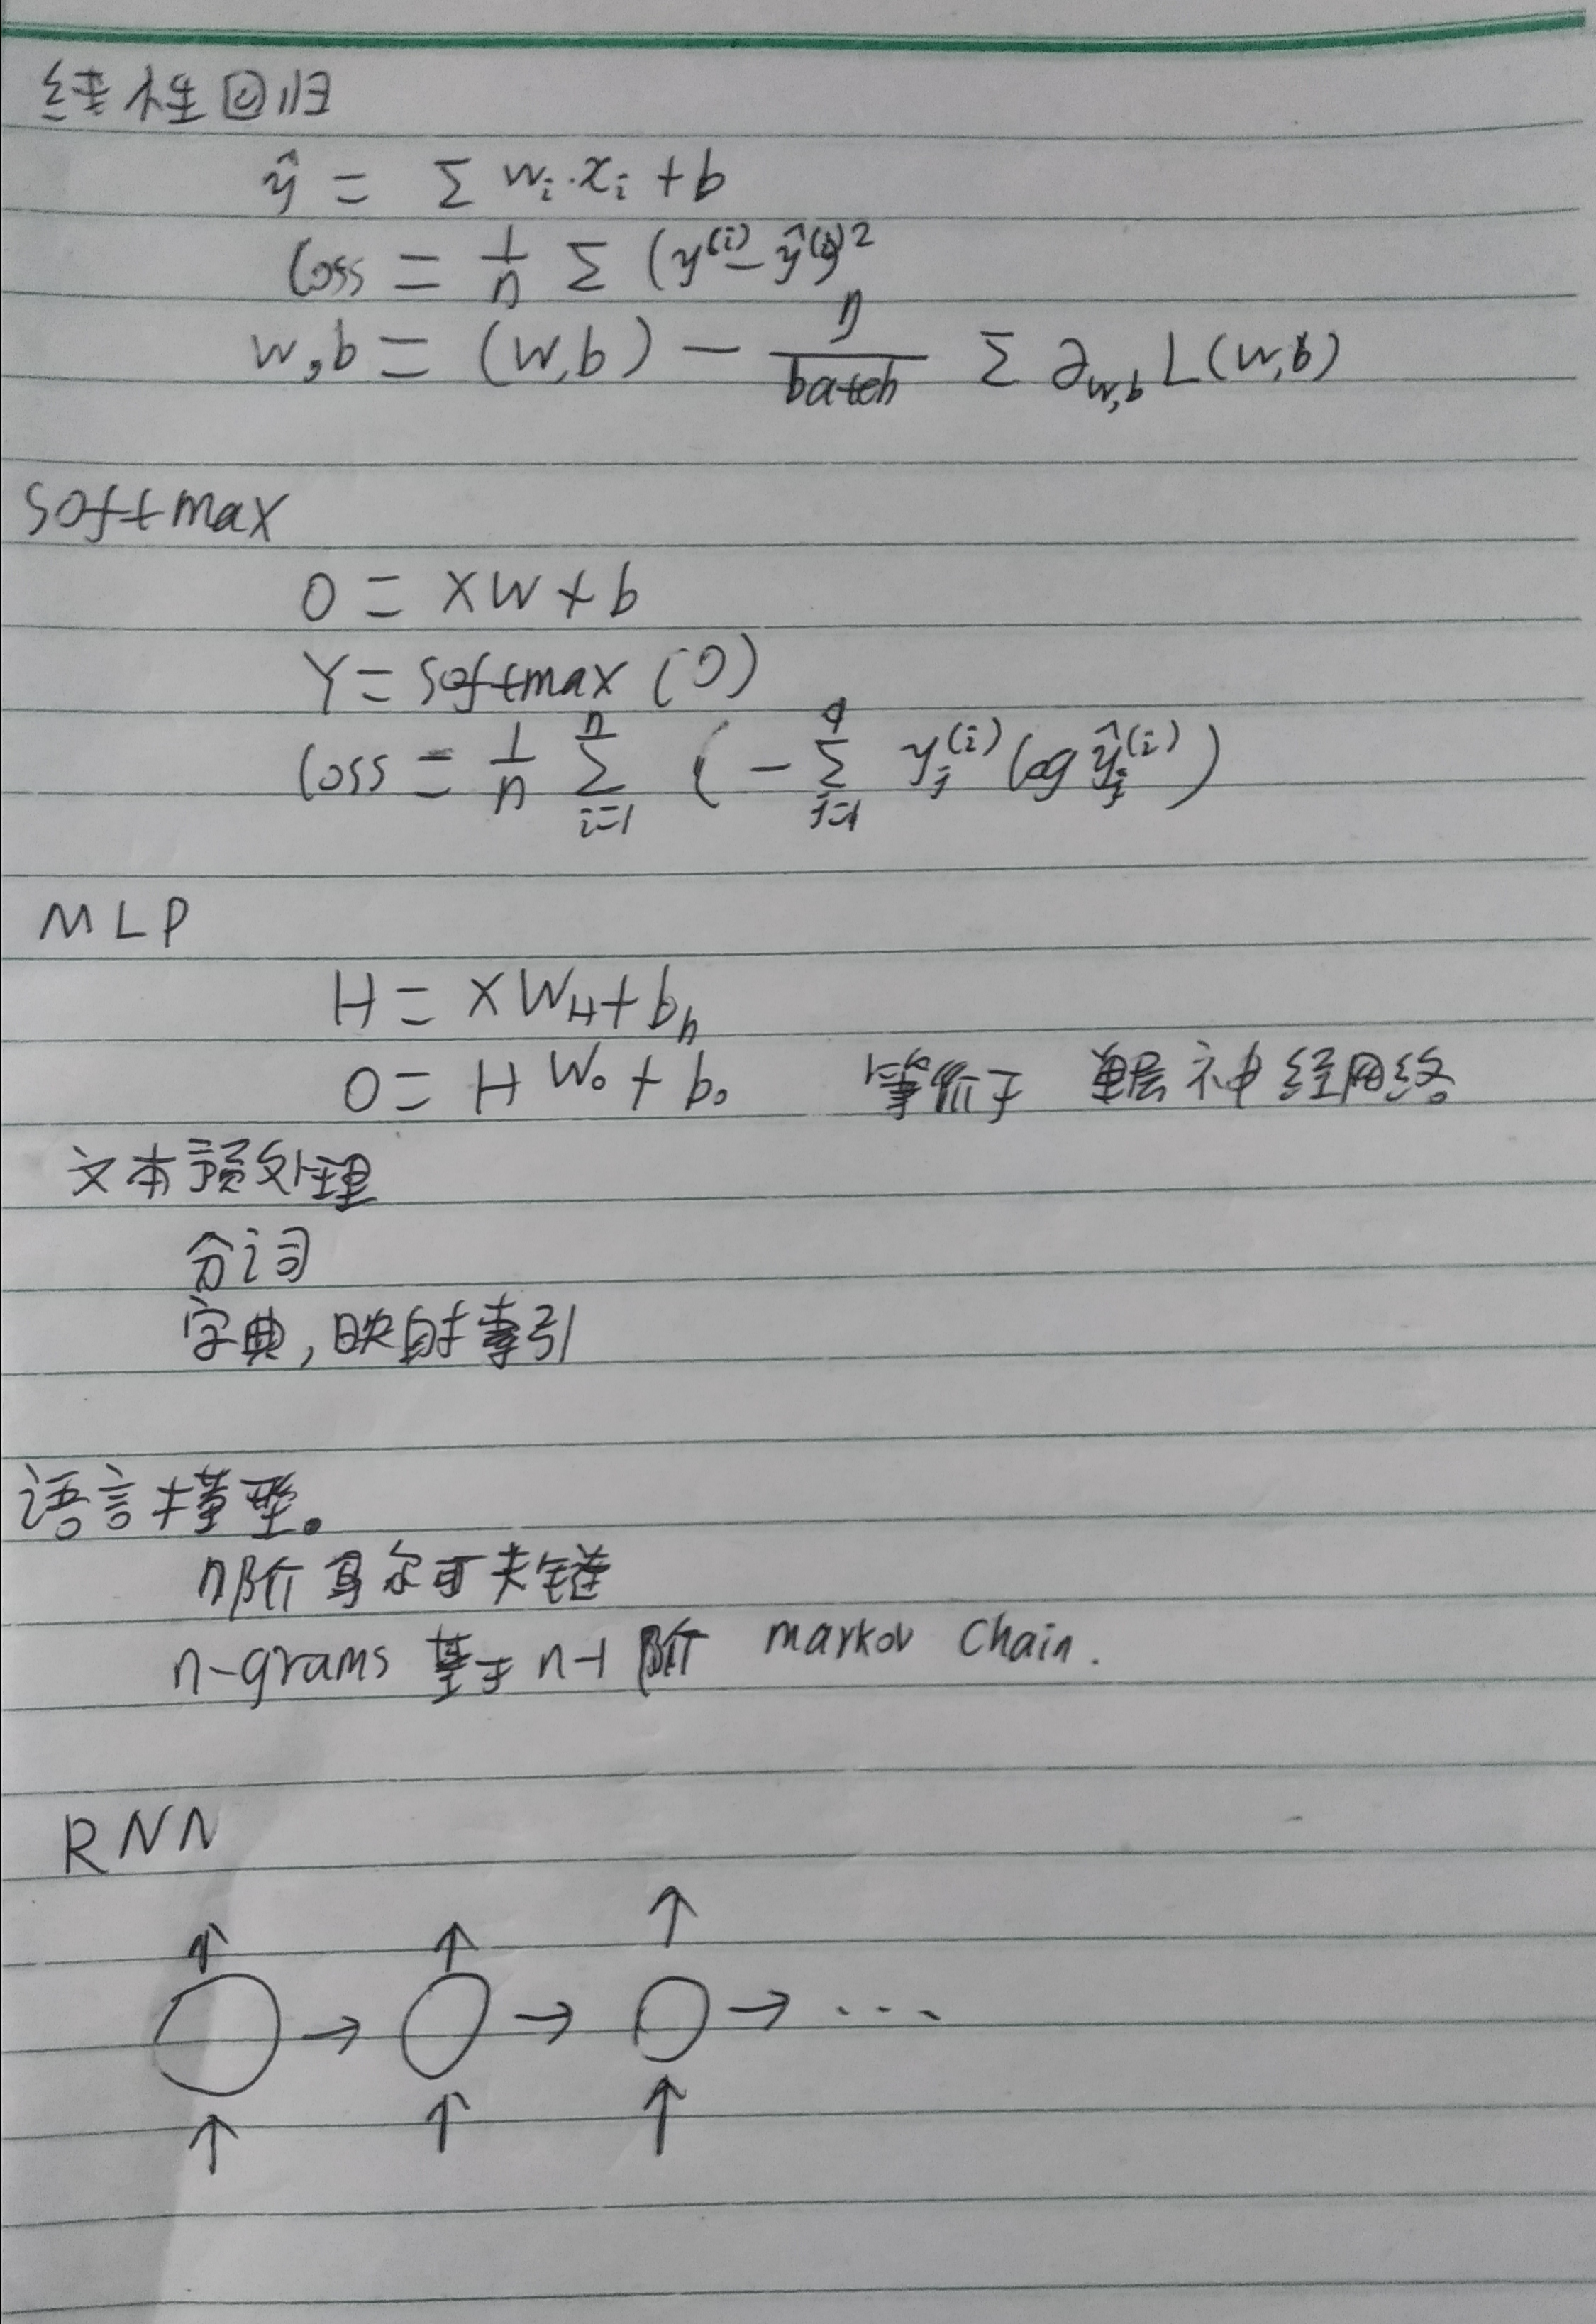 线性回归
ŷ = Σ wᵢ·xᵢ + b
loss = 1/n Σ (y⁽ⁱ⁾ - ŷ⁽ⁱ⁾)²
w,b = (w,b) - η/batch Σ ∂w,b L(w,b)
softmax
O = XW + b
Y = softmax (O)
loss = 1/n Σᵢ₌₁ⁿ ( - Σⱼ₌₁^q yⱼ⁽ⁱ⁾ log ŷⱼ⁽ⁱ⁾ )
MLP
H = XW_H + b_h
O = H W_o + b_o 等价于 单层神经网络
文本预处理
分词
字典,映射索引
语言模型。
n阶马尔可夫链
n-grams 基于 n-1 阶 markov Chain.
RNN
→ → → ...